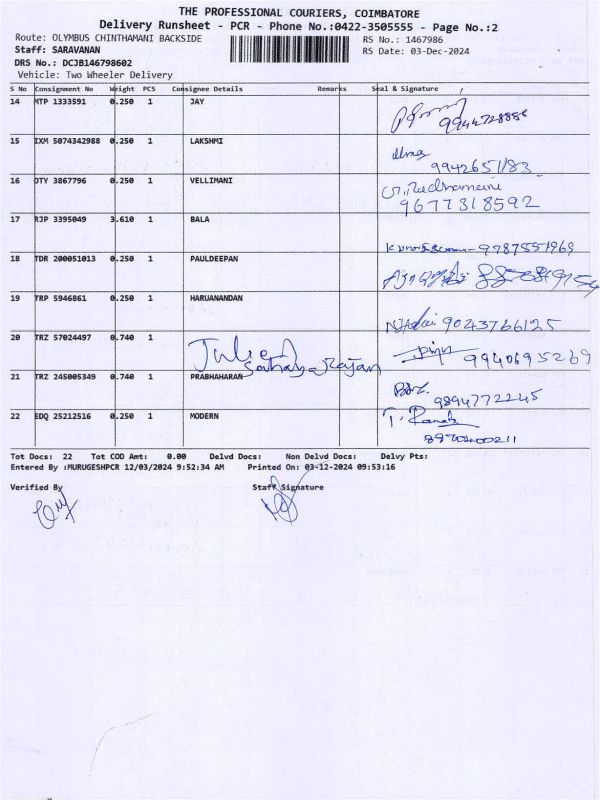 THE PROFESSIONAL COURIERS, COIMBATORE
Delivery Runsheet - PCR - Phone No.:0422-3505555 - Page No.:2
Route: OLYMBUS CHINTHAMANI BACKSIDE RS No.: 1467986
Staff: SARAVANAN RS Date: 03-Dec-2024
DRS No.: DCJB146798602
Vehicle: Two Wheeler Delivery
S No Consignment No Weight PCS Consignee Details Remarks Seal & Signature
14 MTP 1333591 0.250 1 JAY
15 IXM 5074342988 0.250 1 LAKSHMI
9942651183
16 DTY 3867796 0.250 1 VELLIMANI
9677318592
17 RJP 3395049 3.610 1 BALA
9787551969
18 TDR 200051013 0.250 1 PAULDEEPAN
19 TRP 5946861 0.250 1 HARUANANDAN
9043766125
20 TRZ 57024497 0.740 1
Sahaya Rajan 9940695269
21 TRZ 245005349 0.740 1 PRABHAHARAN
9894772245
22 EDQ 25212516 0.250 1 MODERN
Tot Docs: 22 Tot COD Amt: 0.00 Delvd Docs: Non Delvd Docs: Delvy Pts:
Entered By :MURUGESHPCR 12/03/2024 9:52:34 AM Printed On: 03-12-2024 09:53:16
Verified By Staff Signature